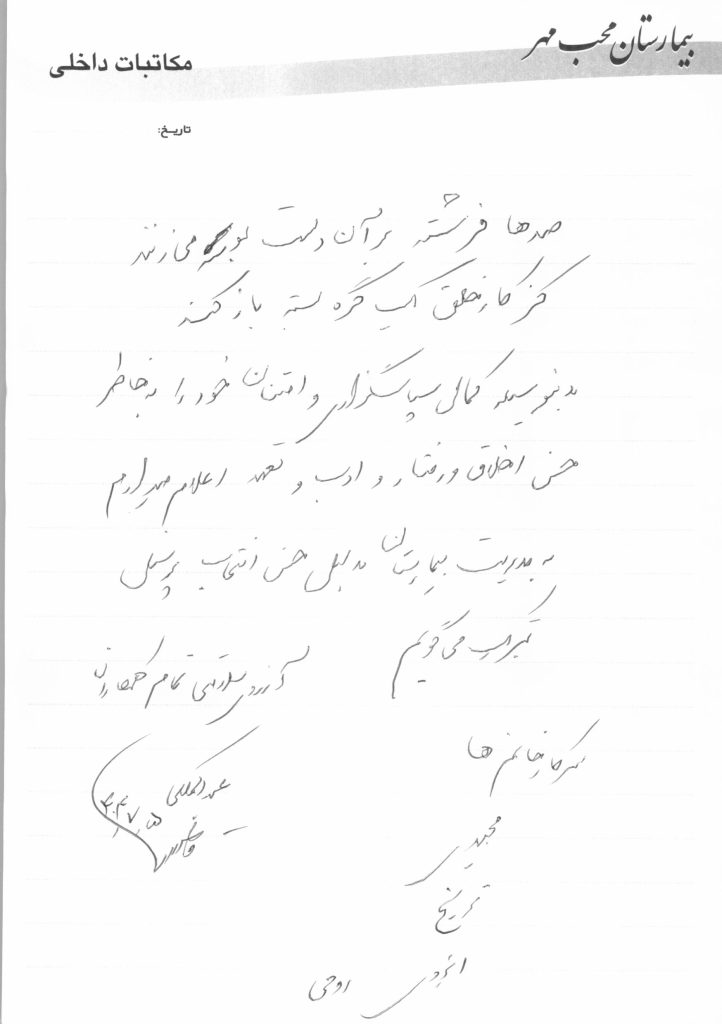 بیمارستان محب مهر
مکاتبات داخلی
تاریخ:
صدها فرشته بر آن دست بوسه می‌زنند
کز کار خلق یک گره بسته باز کند
بدینوسیله کمال سپاسگزاری و امتنان خود را به خاطر
حسن اخلاق و رفتار و ادب و تعهد اعلام میدارم
به مدیریت بیمارستان بدلیل حسن انتخاب پرسنل
تبریک می گویم
آرزوی سلامتی تمام همکاران
سرکار خانم ها
عبدالملکی
مجیدی
ایزدی روحی